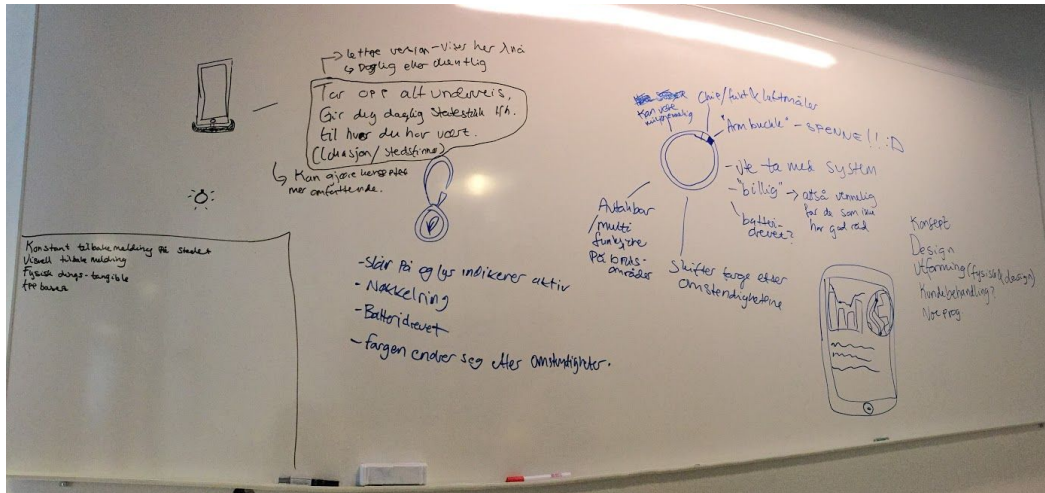 lettere version - Viser her & nå
↳ Daglig eller ukentlig
Tar opp alt underveis,
Gir deg daglig statestikk ift.
til hvor du har vært.
(lokasjon/stedsfinner)
↳ Kan gjøre konseptet
mer omfattende.
Konstant tilbakemelding på stedet
Visuell tilbakemelding
Fysisk dings - tangible
App basert
- Slår på og lys indikerer aktiv
- Nøkkelring
- Batteridrevet
- fargen endrer seg etter omstendigheter.
Kan være
Chip/fukt & luftmåler
"Arm buckle" - SPENNE!!:D
- ta med system
- "billig" → også vennelig
for de som ikke
har god råd
batteri-
drevet?
Avtakbar
/multi
funksjone
På bruks-
områder
Skifter farge etter
omstendighetene
Konsept
Design
Utforming (fysisk & design)
Kundebehandling?
Noe prog.